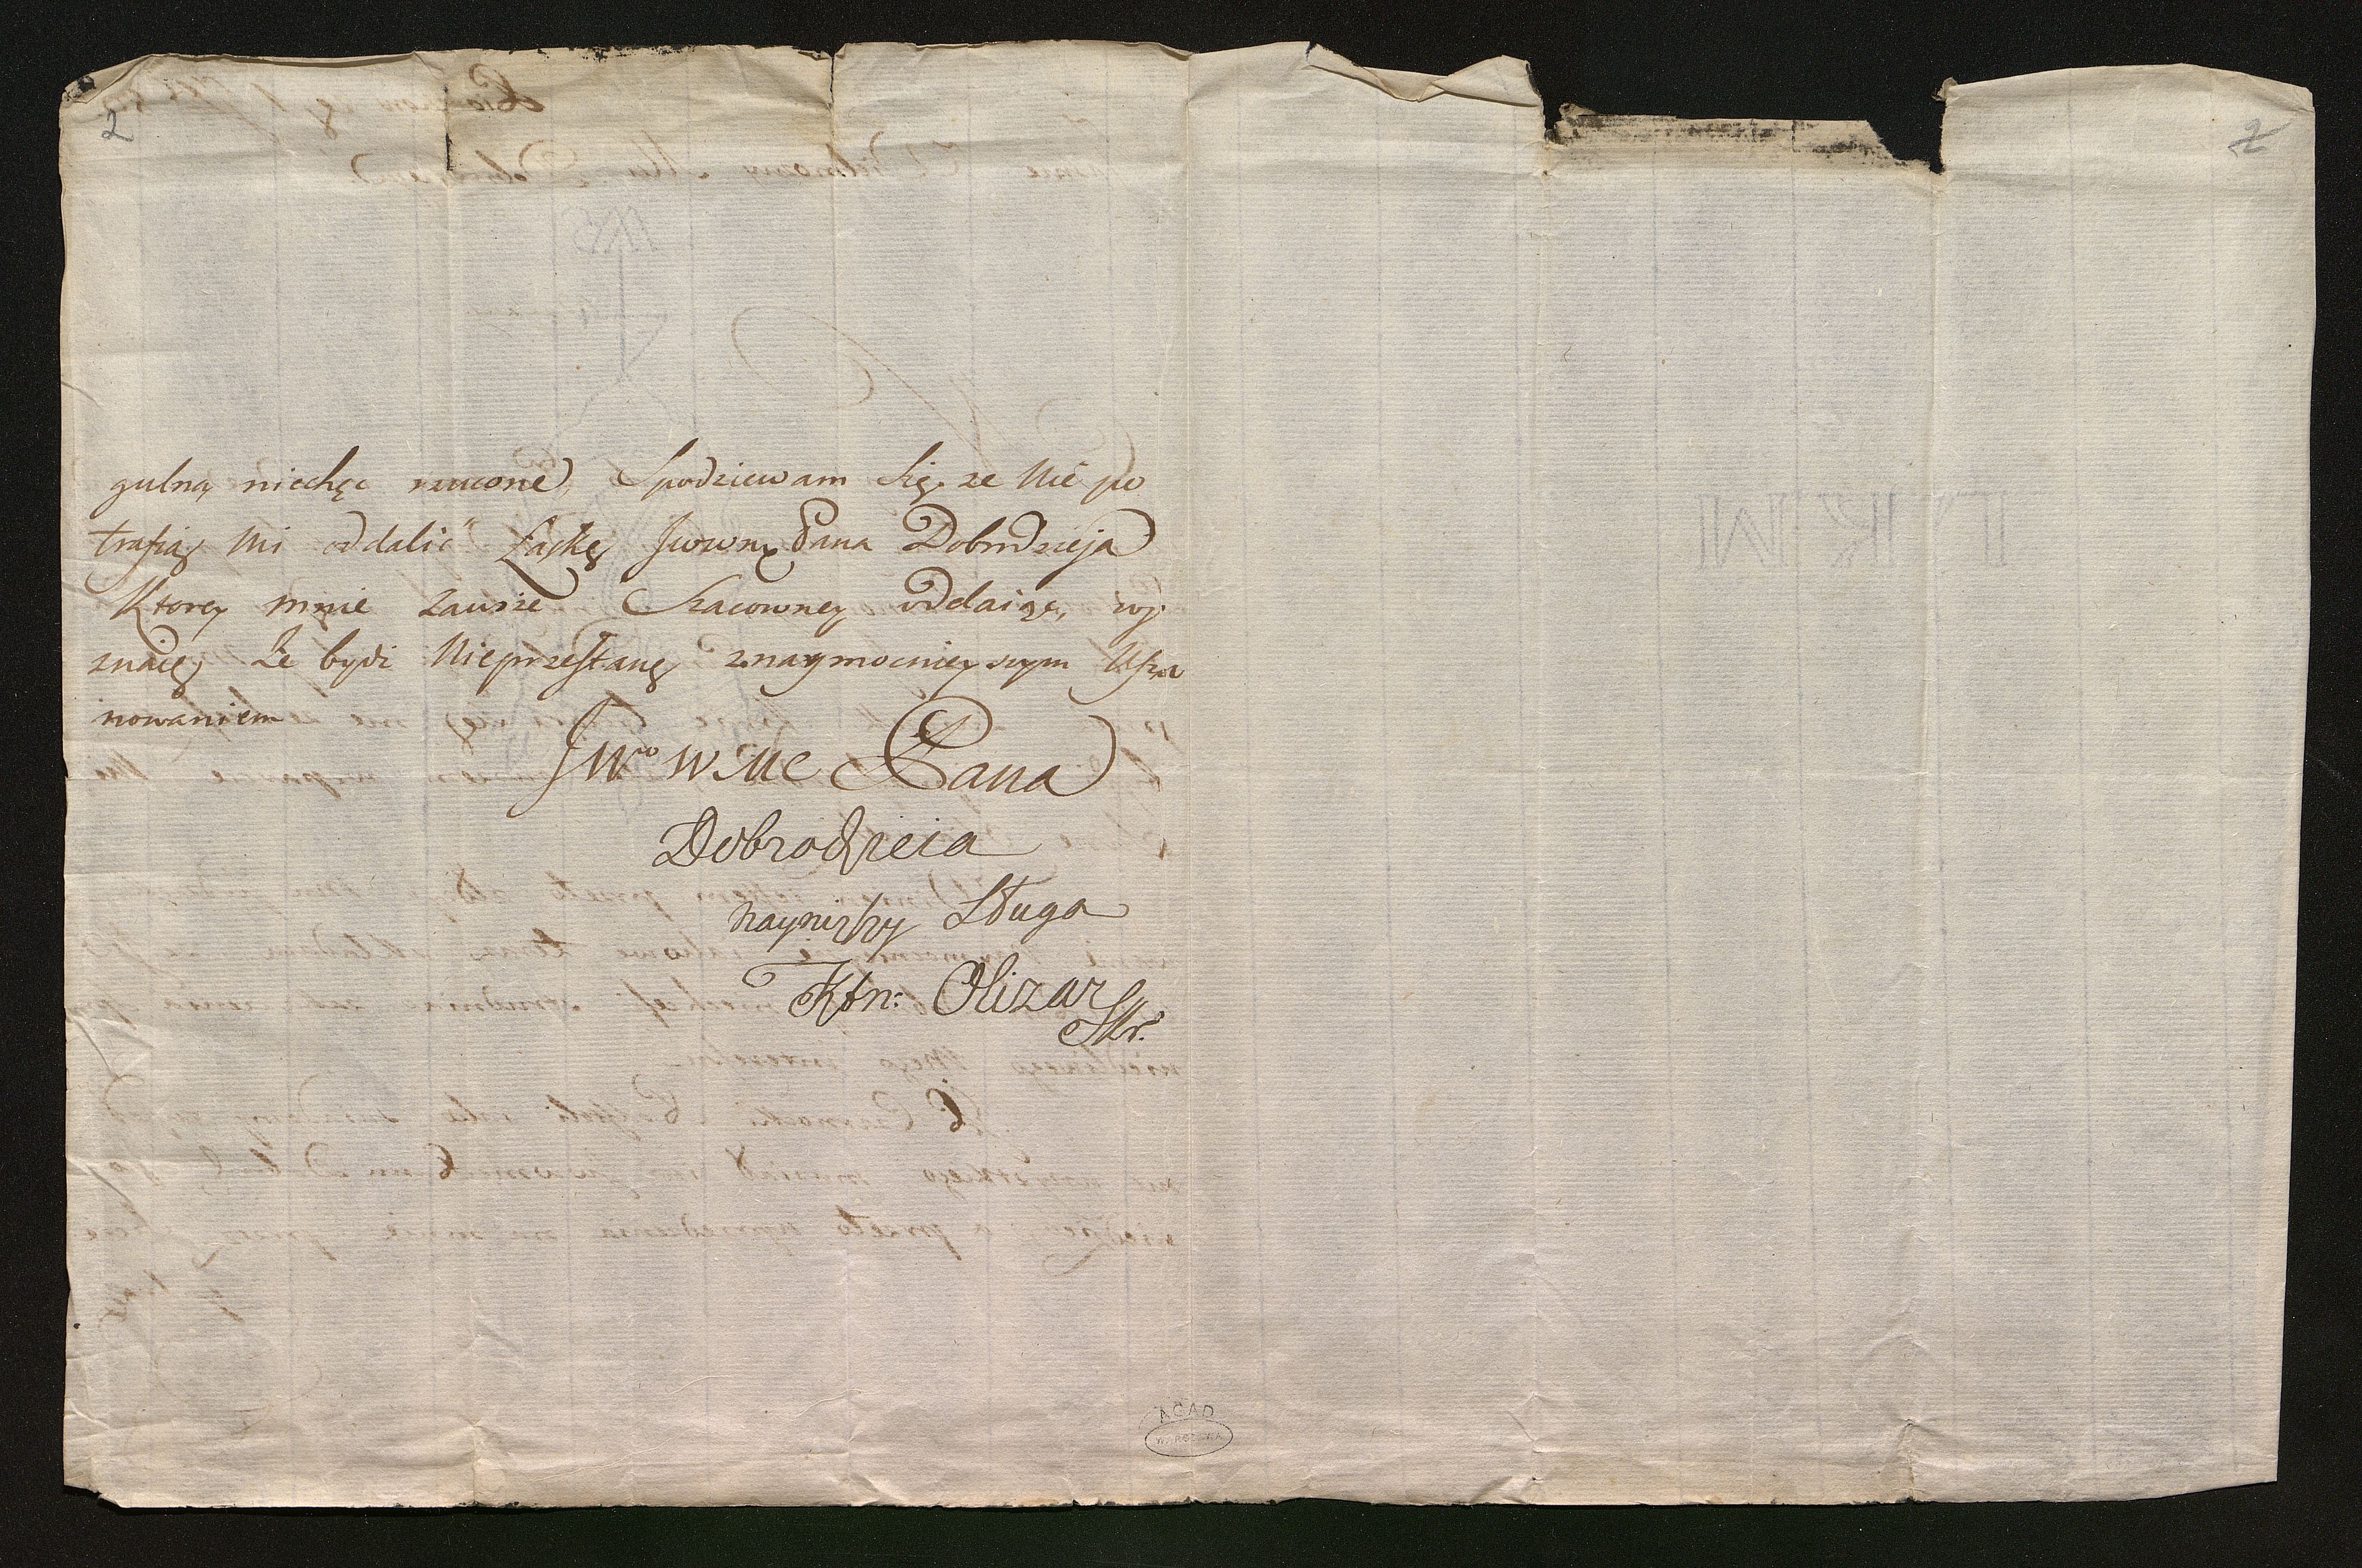 2
2
gulną niechęc rzucone, Spodziewam Się, ze Nie po
trafią Mi oddalić Łaskę Jwwnx Pana Dobrodzieja
Ktorey mnie zawsze Szacowney oddaiąc, wy
znaię Że bydz Nieprzestanę znaymocnieyszym Usza
nowaniem
JWo W Me Pana
Dobrodzieia
nayniszy Sługa
Ktn: Olizar
SKr.
AGAD
WARSZAWA